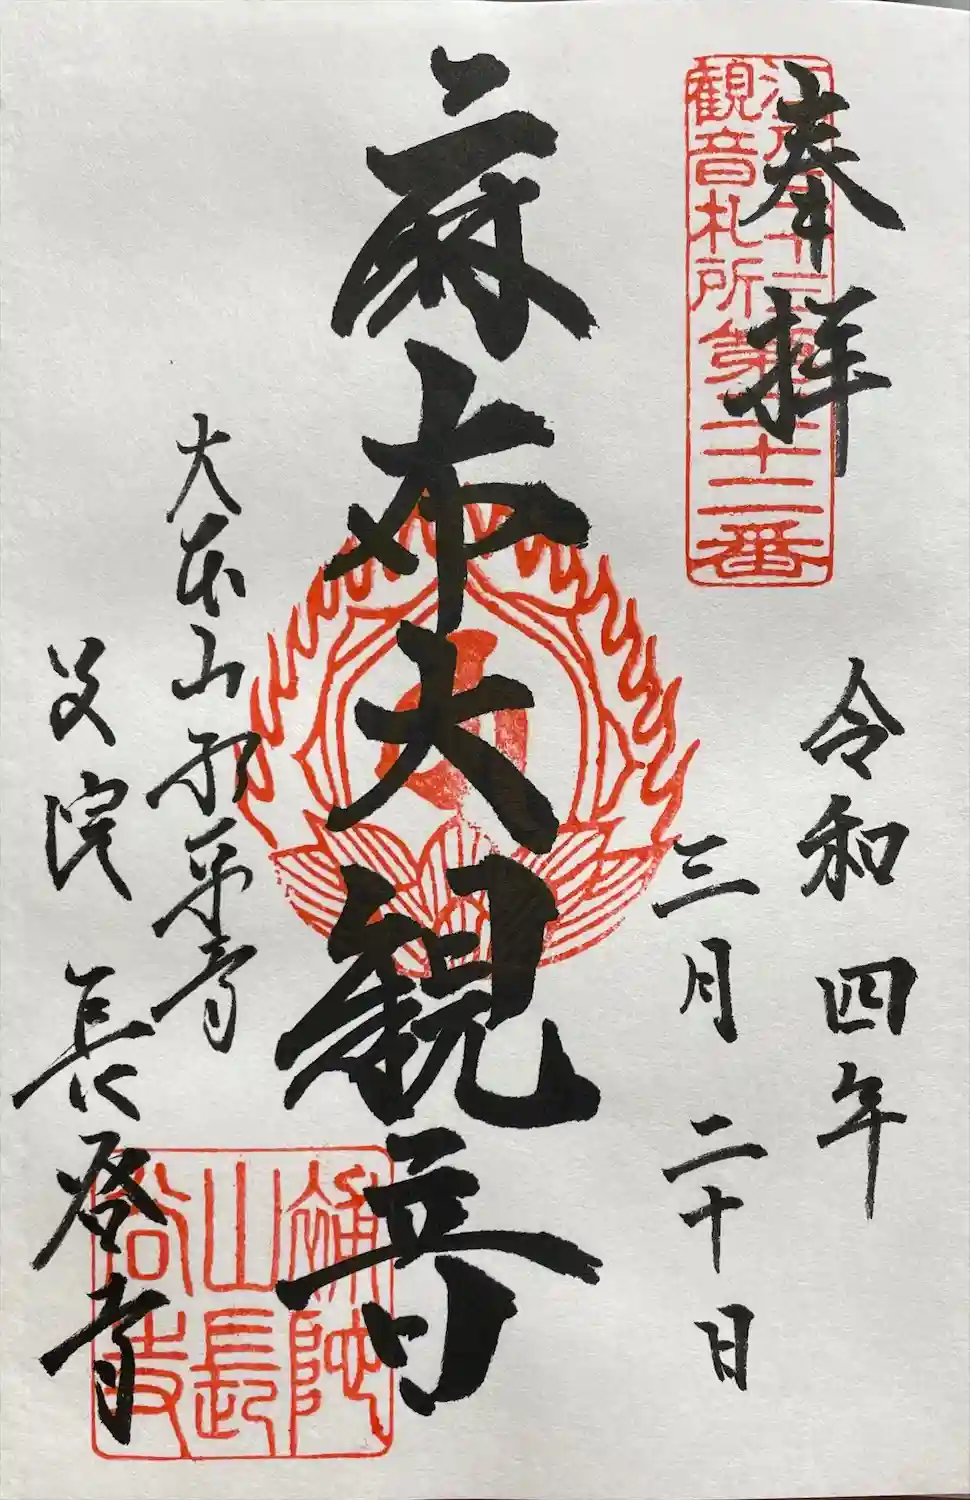 奉拝
観音札所第二十二番
令和四年
三月二十日
麻布大観音
大本山永平寺
別院 長谷寺
補陀
山長
谷寺